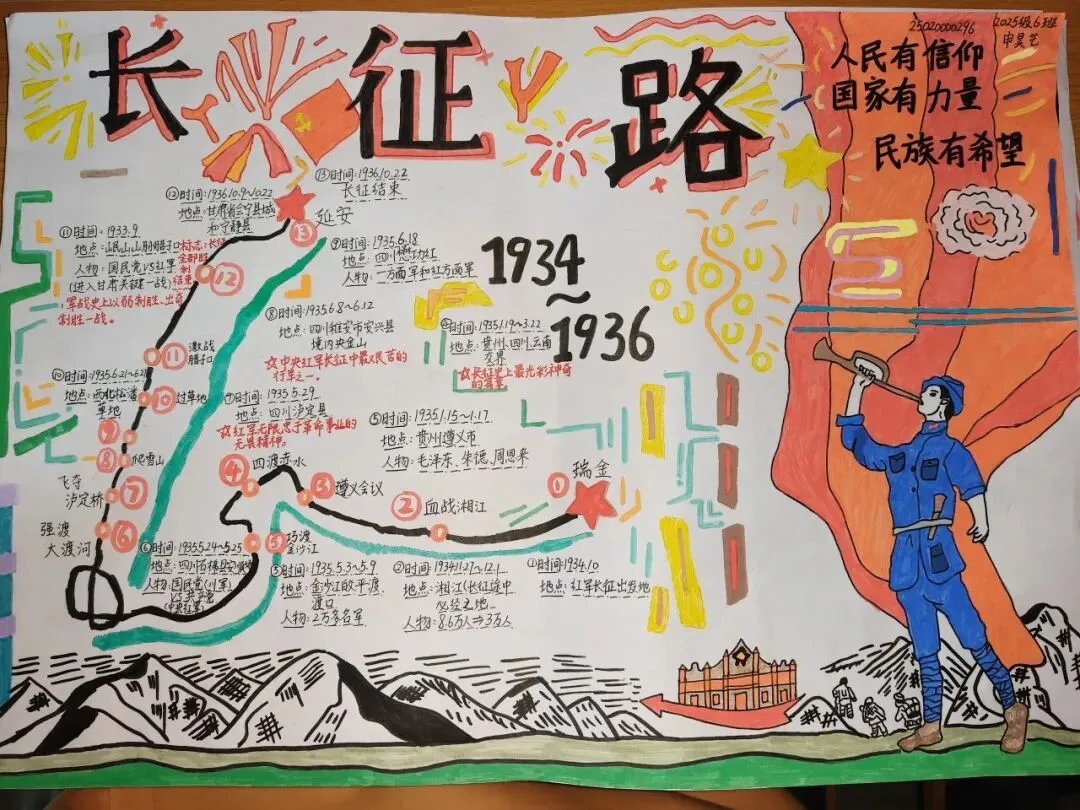 长征路
25020000296
2025级6班
申昊艺
人民有信仰
国家有力量
民族有希望
1934
~
1936
⑬时间:1936.10.22
长征结束
⑫时间:1936.10.9~10.22
地点:甘肃省会宁县城
和宁静县
延安
13
⑪时间:1933.9
地点:岷山山脉腊子口
人物:国民党VS红军
(进入甘肃关键一战)
军战史上以弱制胜、出奇
制胜一战。
标志:长征
全部胜
利
结束
12
⑨时间:1935.6.18
地点:四川懋功红
人物:一方面军和红方面军
⑧时间:1935.6.8~6.12
地点:四川雅安市安兴县
境内夹金山
☆中央红军长征中最艰苦的
行军之一。
④时间:1935.1.19~3.22
地点:贵州、四川、云南
交界
☆长征史上最光彩神奇
的篇章
11
激战
腊子口
⑩时间:1935.6.21~6.2
地点:西北松潘
草地
10
过草地
9
8
爬雪山
⑦时间:1935.5.29
地点:四川泸定县
☆红军无限忠于革命事业的
无畏精神。
⑤时间:1935.1.15~1.17
地点:贵州遵义市
人物:毛泽东、朱德、周恩来
飞夺
泸定桥
7
强渡
大渡河
6
4
四渡赤水
3
遵义会议
2
血战湘江
1
瑞金
5
巧渡
金沙江
⑥时间:1935.5.24~5.25
地点:四川石棉县安顺场
人物:国民党(川军)
VS共产党
(中央红军)
⑤时间:1935.5.3~5.9
地点:金沙江皎平渡
渡口
人物:2万多名军
②时间:1934.11.27~12.1
地点:湘江(长征途中
必经之地
人物:8.6万人→3万人
①时间:1934.10
地点:红军长征出发地